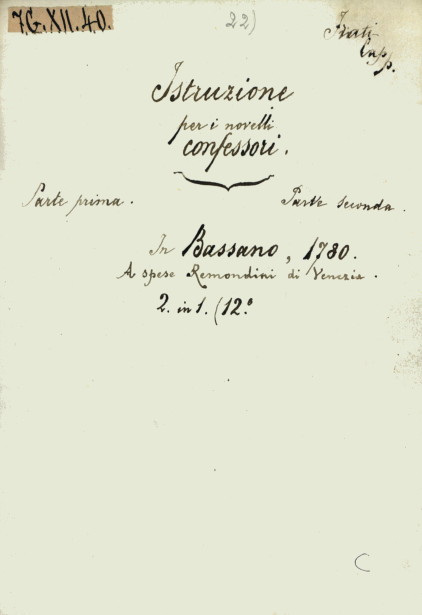 7.G.XII.40.
22)
Frati
Capp.
Istruzione
per i novelli
confessori.
Parte prima. Parte seconda.
In Bassano, 1780.
A spese Remondini di Venezia.
2. in 1. (12.º
C